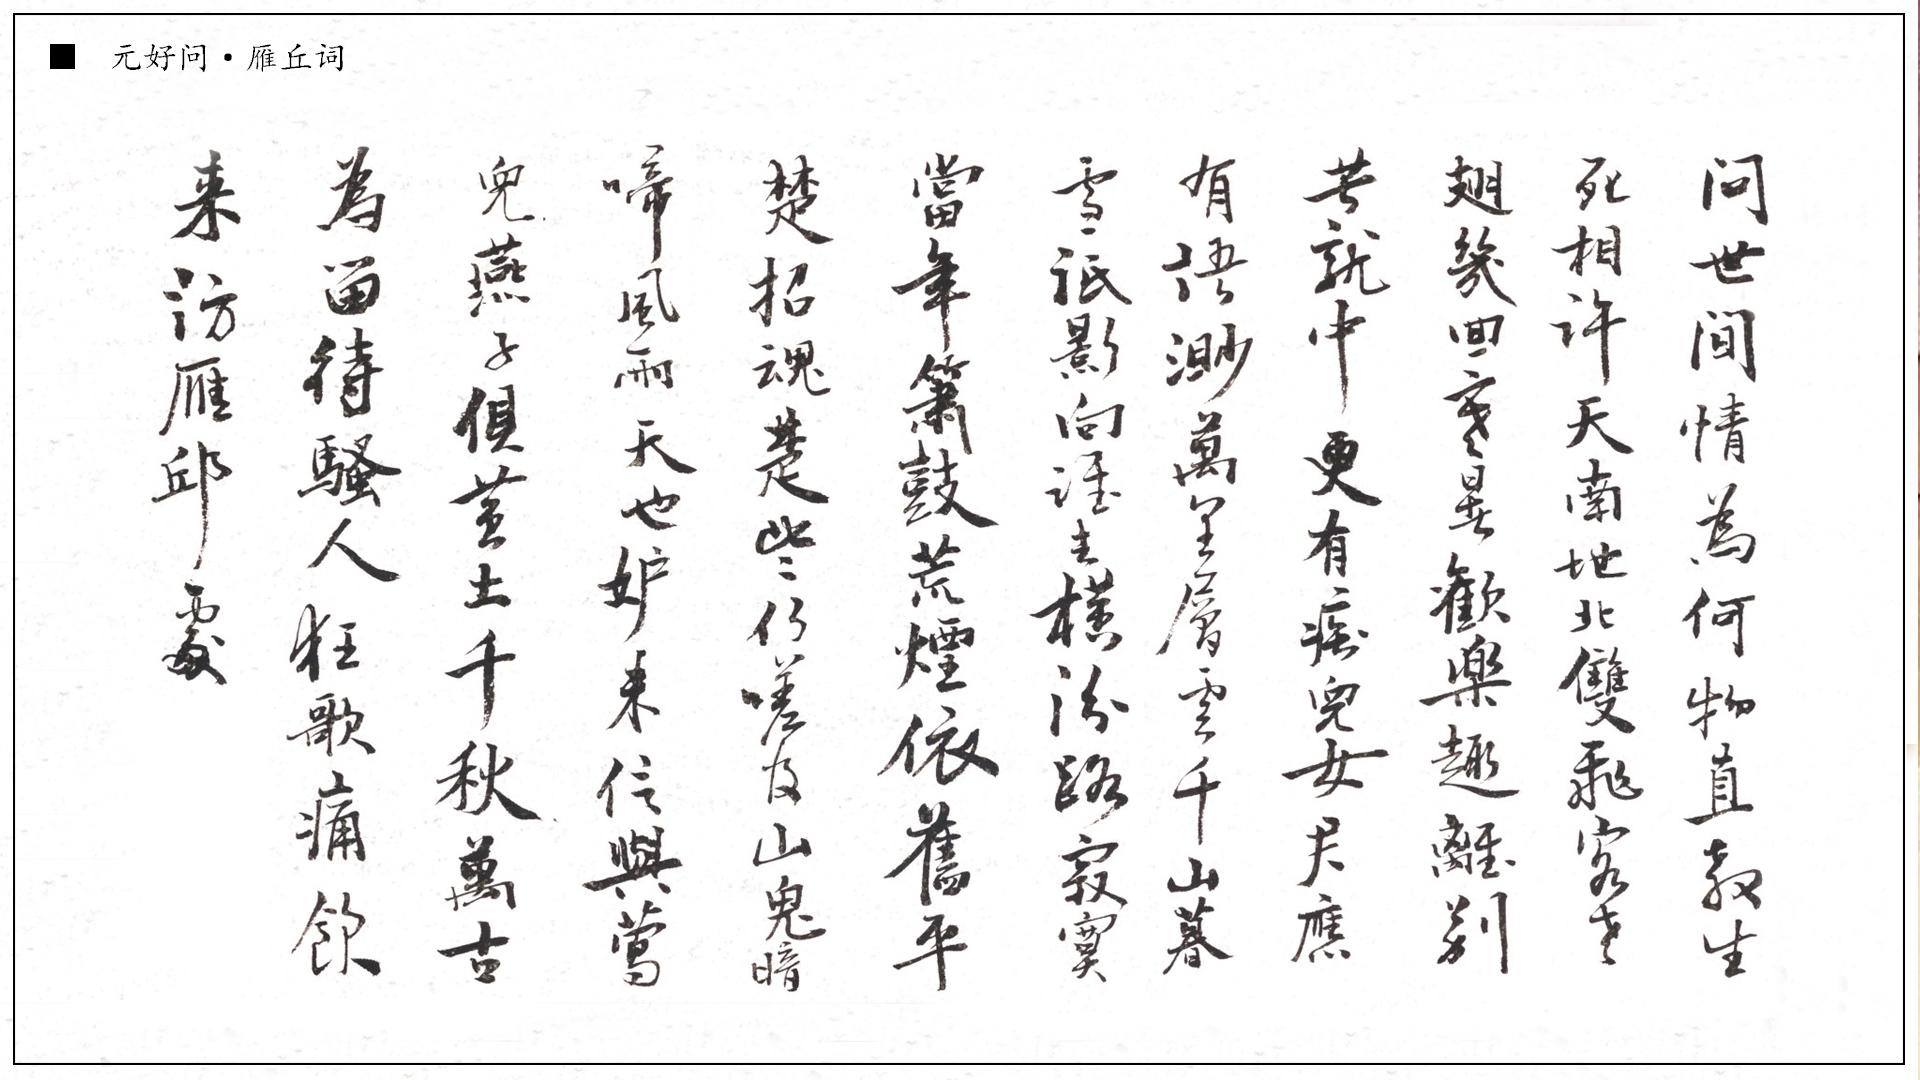 元好问·雁丘词
问世间情為何物直教生
死相许天南地北雙飛客老
翅幾回寒暑歡樂趣離别
苦就中更有痴兒女君應
有语渺萬里層雲千山暮
雪祇影向谁去横汾路寂寞
當年箫鼓荒煙依舊平
楚招魂楚些仍嗟及山鬼暗
啼風雨天也妒未信與莺
兒燕子俱黄土千秋萬古
為留待騷人狂歌痛飲
来访雁邱處